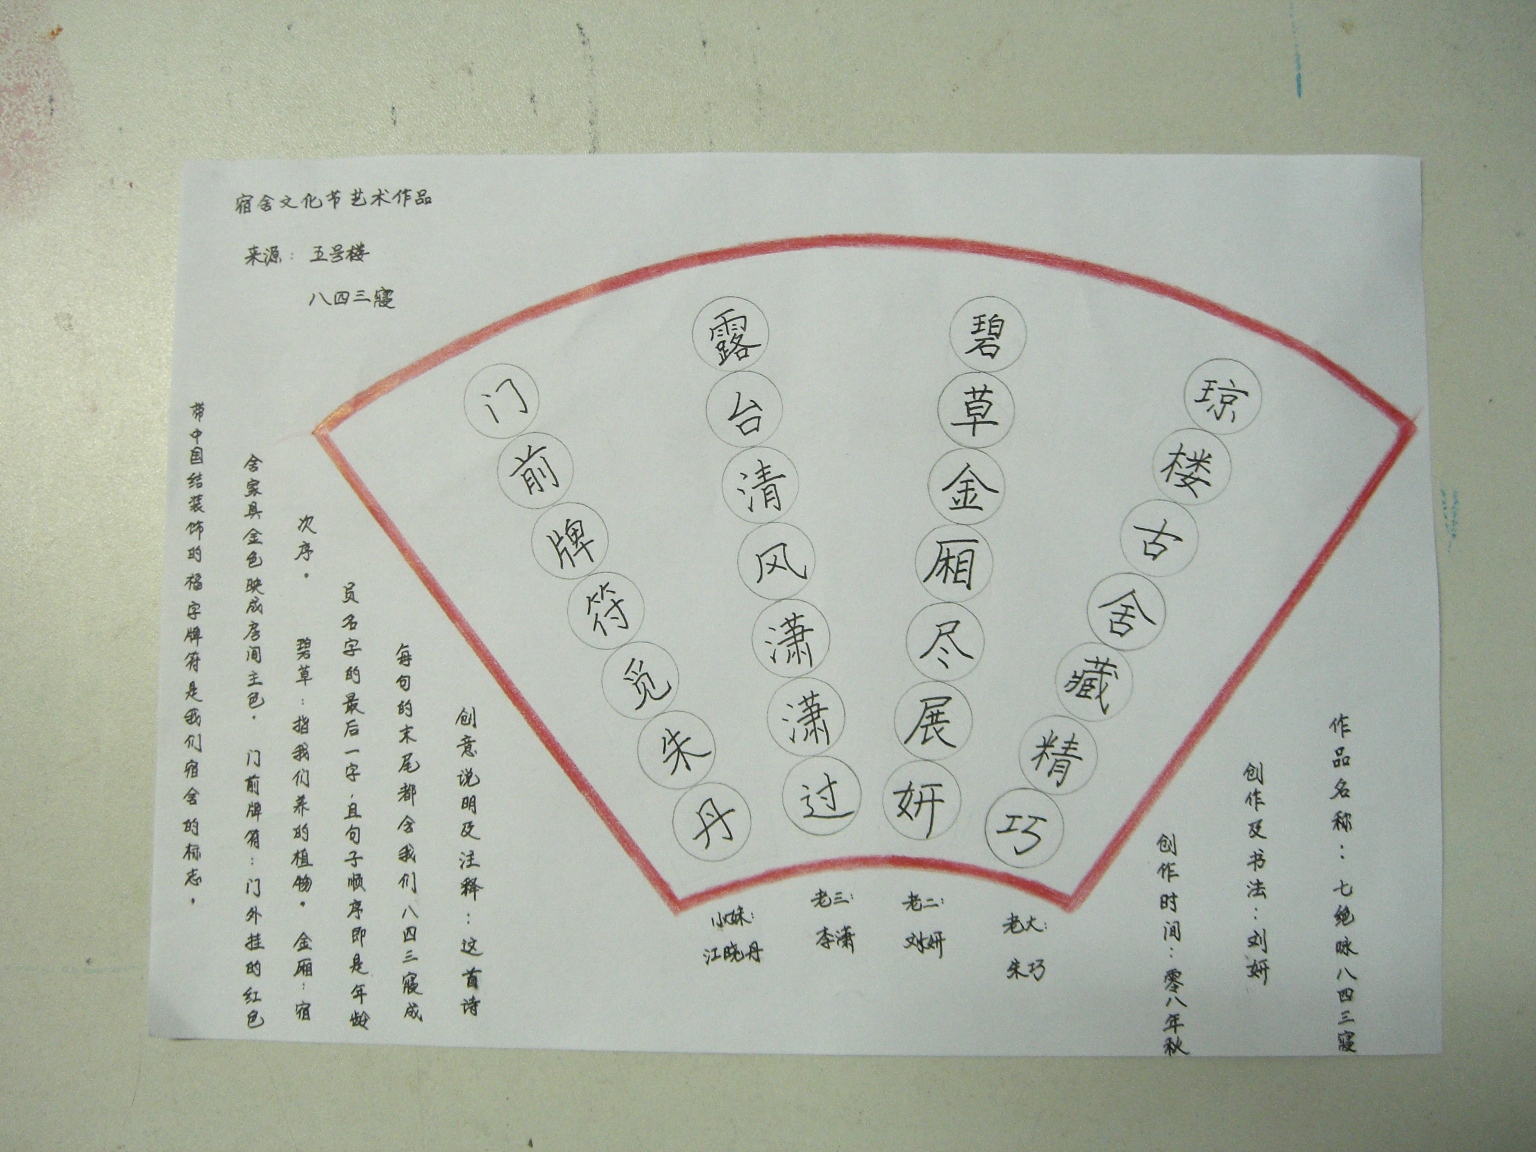 宿舍文化节艺术作品
来源：五号楼
八四三寝
作品名称：七绝咏八四三寝
创作及书法：刘妍
创作时间：零八年秋
琼楼古舍藏精巧
碧草金厢尽展妍
露台清风潇潇过
门前牌符觅朱丹
老大：
朱巧
老二：
刘妍
老三：
李潇
小妹：
江晓丹
创意说明及注释：这首诗
每句的末尾都含我们八四三寝成
员名字的最后一字，且句子顺序即是年龄
次序。 碧草：指我们养的植物。 金厢：宿
舍家具金色映成房间主色。 门前牌符：门外挂的红色
带中国结装饰的福字牌符是我们宿舍的标志。